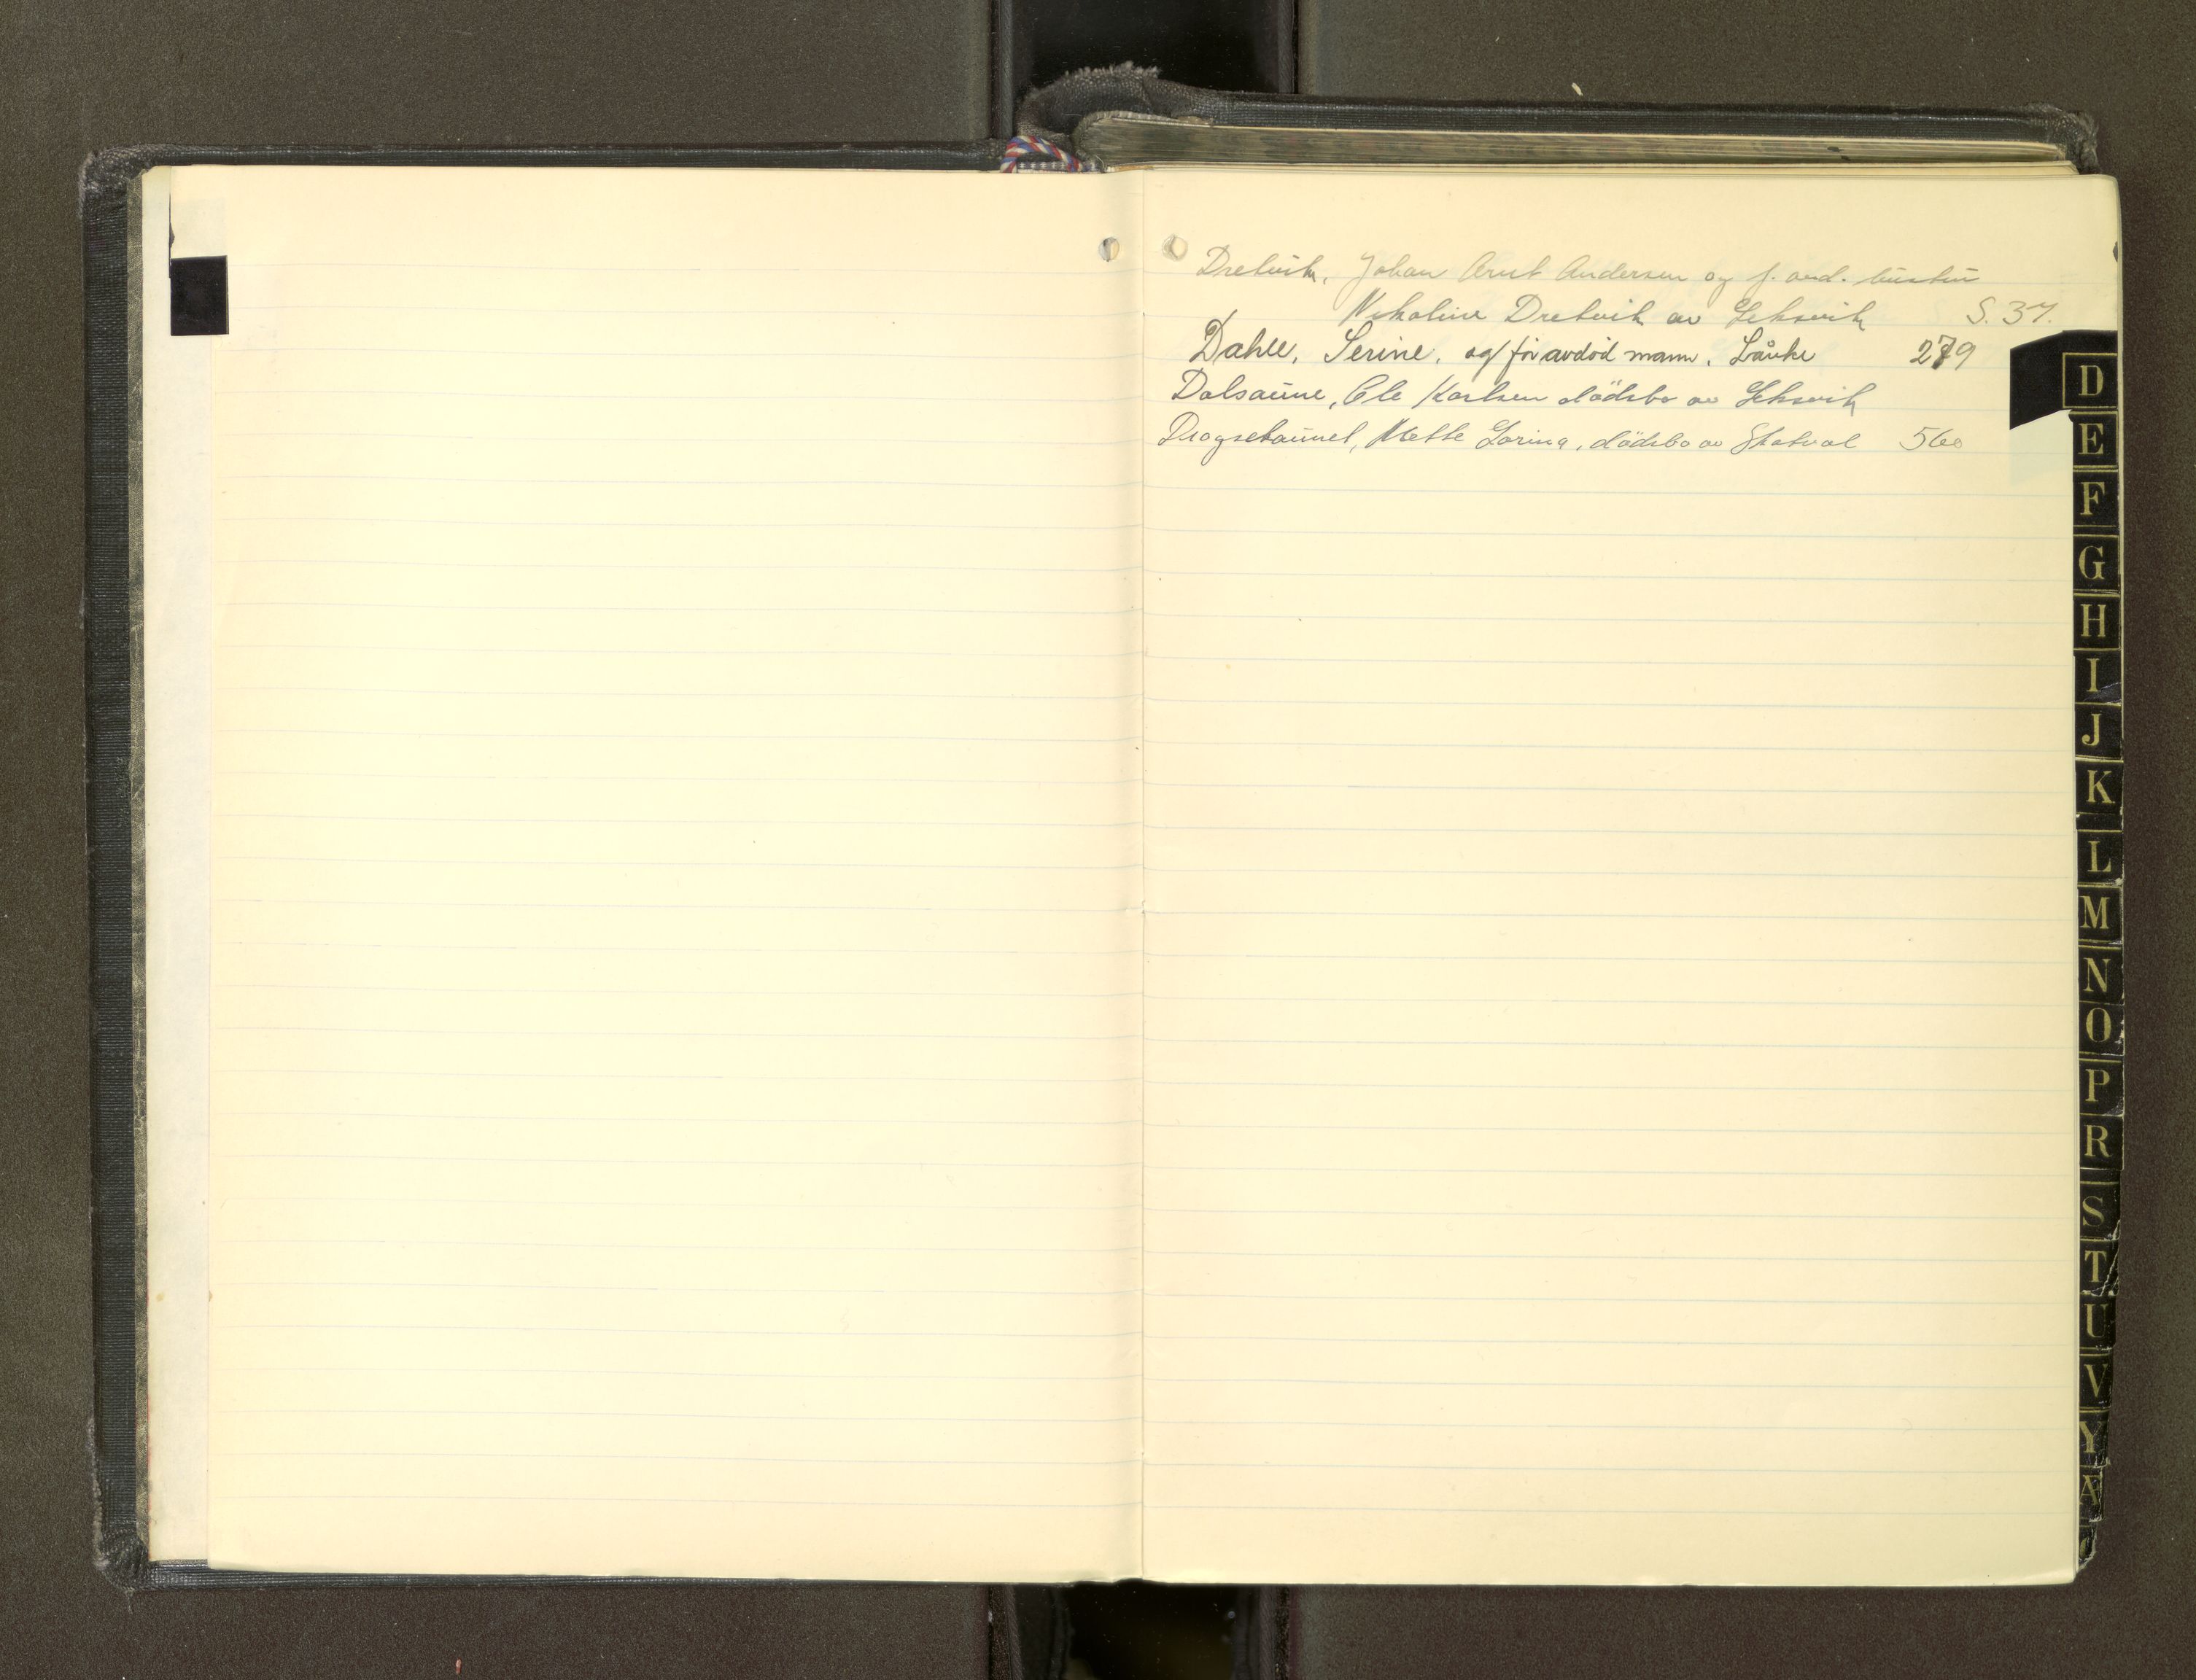 Dretvik, Johan Arnt Andersen og f. avd. hustru
Nikoline Dretvik av Leksvik S. 37.
Dahle, Serine, og før avdöd mann. Lånke 279
Dalsaune, Ole Karlsen dödsbo av Leksvik
Drogsetaunet, Mette Larina, dödsbo av Skatval 560
D
E
F
G
H
I
J
K
L
M
N
O
P
R
S
T
U
V
Y
Æ